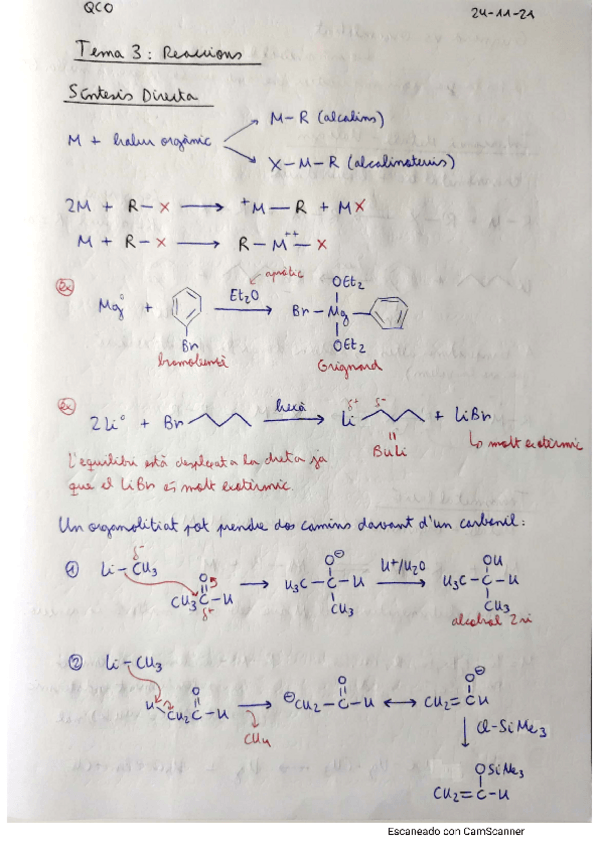 QCO 24-11-21
Tema 3: Reaccions
Síntesis Directa
M + halur orgànic
M-R (alcalins)
X-M-R (alcalinoterris)
2M + R-X → ⁺M-R + MX
M + R-X → R-M⁺⁺-X
Ex
apròtic
Mg° + Br Et₂O → Br-Mg OEt₂ OEt₂
bromobenzè Grignard
Ex
2Li° + Br hexà → Li δ⁺ δ⁻ + LiBr
BuLi
↳ molt exotèrmic
L'equilibri està desplaçat a la dreta ja
que el LiBr és molt exotèrmic.
Un organolitiat pot prendre dos camins davant d'un carbonil:
① Li-CH₃ δ⁻
CH₃C-H O δ⁺ → H₃C-C-H O⊖ CH₃ H⁺/H₂O → H₃C-C-H OH CH₃
alcohol 2ri
② Li-CH₃
H-CH₂C-H O → ⊖CH₂-C-H O ↔ CH₂=CH O⊖
CH₄
↓ Cl-SiMe₃
OSiMe₃
CH₂=C-H
Escaneado con CamScanner